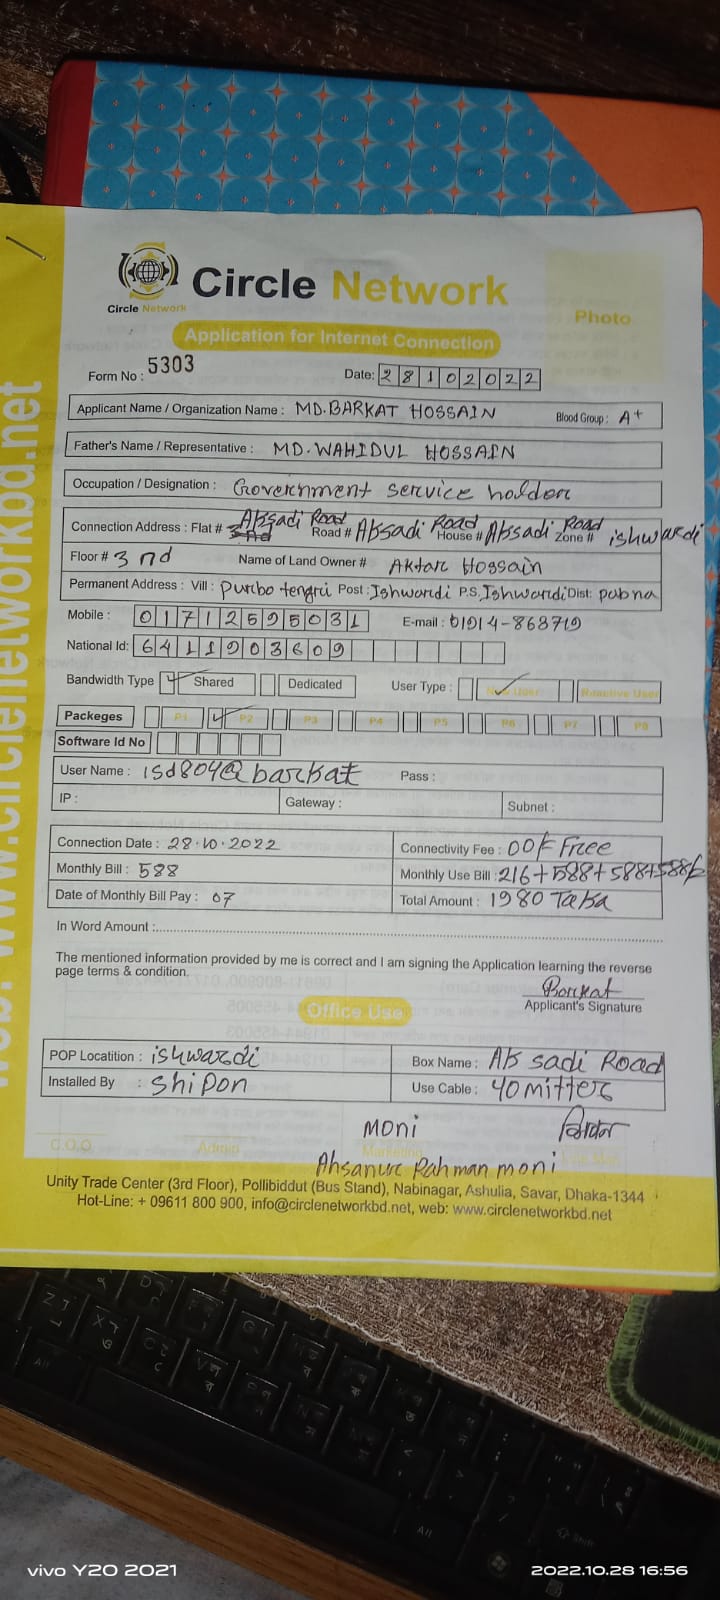 Circle Network
Circle Network
Photo
Application for Internet Connection
Form No : 5303
Date: 28102022
Applicant Name / Organization Name : MD.BARKAT HOSSAIN Blood Group : A+
Father's Name / Representative : MD.WAHIDUL HOSSAIN
Occupation / Designation : Government service holder
Connection Address : Flat # Aksadi Road Road # Aksadi Road House # Aksadi Road Zone # ishwardi
Floor # 3 nd Name of Land Owner # Aktar Hossain
Permanent Address : Vill : Purbo tengri Post : Ishwardi P.S. Ishwardi Dist: pabna
Mobile : 01712595031 E-mail : 01914-868719
National Id: 6411903609
Bandwidth Type Shared Dedicated User Type : New User Reactive User
Packeges P1 P2 P3 P4 P5 P6 P7 P8
Software Id No
User Name : isd804@barkat Pass :
IP : Gateway : Subnet :
Connection Date : 28.10.2022 Connectivity Fee : 00/= Free
Monthly Bill : 588 Monthly Use Bill : 216+588+588+588/=
Date of Monthly Bill Pay : 07 Total Amount : 1980 Taka
In Word Amount :
The mentioned information provided by me is correct and I am signing the Application learning the reverse
page terms & condition.
Barkat
Applicant's Signature
Office Use
POP Locatition : ishwardi Box Name : Ak sadi Road
Installed By : Shipon Use Cable : 40 mitter
MONI
C.O.O Admin Marketing
Ahsanur Rahman moni
Unity Trade Center (3rd Floor), Pollibiddut (Bus Stand), Nabinagar, Ashulia, Savar, Dhaka-1344
Hot-Line: + 09611 800 900, info@circlenetworkbd.net, web: www.circlenetworkbd.net
web: www.circlenetworkbd.net
vivo Y20 2021
2022.10.28 16:56